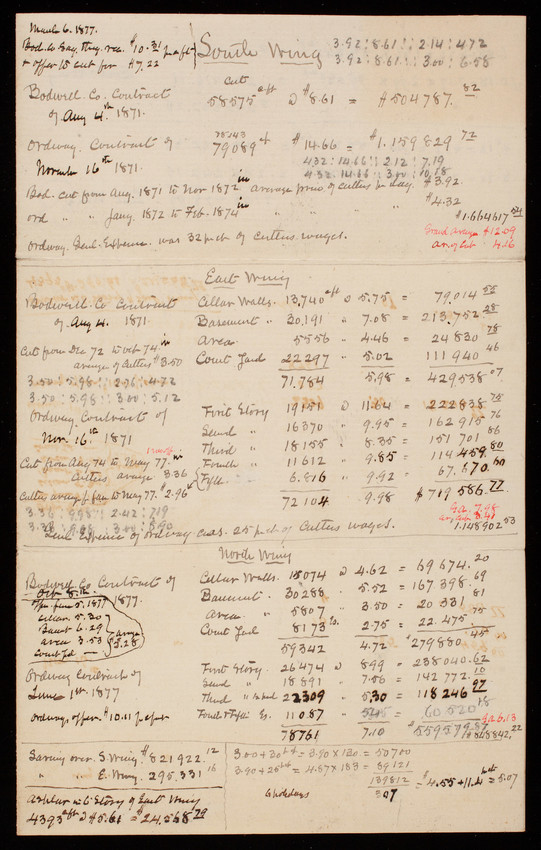 March 6. 1877.
South Wing
3.92 : 8.61 : : 2.14 : 4.72
3.92 : 8.61 : : 3.00 : 6.58
+ offer to cut for $7.22
cut
Bodwell Co. Contract 58575 cft @ $8.61 = $504787.82
of Aug 4th 1871.
78543
Ordway. Contract of 79089 cf $14.66 = $1.159829 72
November 16th 1871.
4.32 : 14.66 : : 2.12 : 7.19
4.32 : 14.66 : : 3.00 : 10.18
Bod. Cut from Aug. 1871 to Nov 1872 in average price of cutters per day. $3.92
Ord " " Jany. 1872 to Feb. 1874 in " " " " $4.32
$1.664617 54
Grand average $12.09
Ordway. Genl. Expense. was 32 pr ct of cutters wages.
East Wing
Bodwell Co Contract Cellar Walls. 13,740 cft @ 5.75 = 79,014 55
of Aug 4. 1871. Basement " 30,191 " 7.08 = 213,752 28
Area 5556 " 4.46 = 24830 78
Cut from Dec 72 to Oct 74 in Court Yard 22297 " 5.02 = 111940 46
average of Cutters $3.50
71.784 5.98 = 429538 07
3.50 : 5.98 : : 2.76 : 4.72
3.50 : 5.98 : : 3.00 : 5.12
Ordway. Contract of First Story 19151 @ 11.64 = 222838 75
Nov. 16th 1871 Second " 16370 " 9.95 = 162915 76
Third " 18155 " 8.35 = 151701 86
Cut from Aug 74 to May 77. in Fourth " 11612 " 9.85 = 114459.80
Cutters average 3.36 Fifth " 6.816 " 9.92 = 67.670.60
Cutters average f Jan to May 77. 2.96
72104 9.98 $719586.77
3.36 : 9.98 : : 2.42 : 7.19
Ga. 7.98
3.36 : 9.98 : : 3.00 : 8.90
1.148902 53
Genl. Expense of Ordway was. 25 pr ct of Cutters wages.
North Wing
Bodwell Co. Contract of Cellar Walls. 15074 @ 4.62 = 69674.20
Oct 8th 1877. Basement " 30288 " 5.52 = 167398.69
Area " 5807 " 3.50 = 20331 81
Court Yd 8173 " 2.75 = 22.475.75
Cellar 5.30
Basmt 6.29
area 3.53
Court Yd —
average 5.28
59342 4.72 $279880.45
Ordway Contract of First Story. 26474 @ 8.99 = 238040.62
June 1st 1877 Second " 18891 " 7.56 = 142772.10
Third " 22309 " 5.30 = 118246 97
Ordways offer $10.11 per cft Fourth & Fifth 11087 60520 18
78761 7.10 $559579.87
Ga 6.13
Saving over. S. Wing. $821922.12
" " E. Wing. 295.331 16
3.00 + 30 pr ct = 3.90 × 130. = 50700
3.90 + 25 pr ct = 4.87 × 183 = 89121
139812
6 holidays
307
= $4.55 + 11.4 = 5.07
Ashlar in 6 Story of East Wing
4393 cft @ $5.61 = $24,568 79